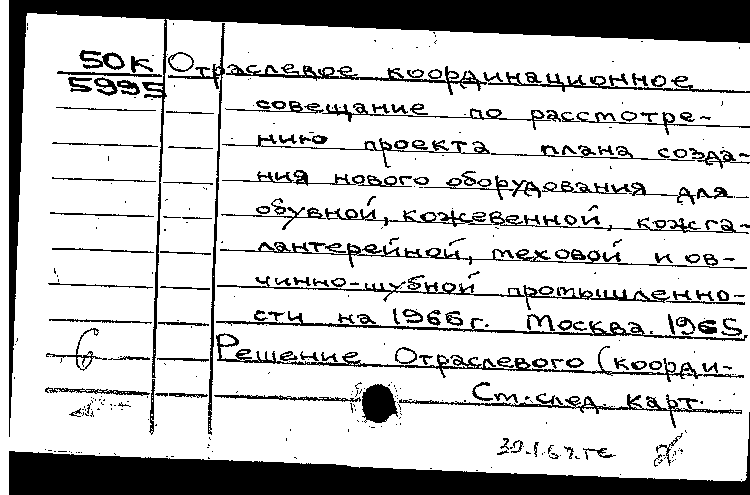 50К Отраслевое координационное
5995
совещание по рассмотре-
нию проекта плана созда-
ния нового оборудования для
обувной, кожевенной, кожга-
лантерейной, меховой и ов-
чинно-шубной промышленно-
сти на 1966г. Москва. 1965.
6 Решение Отраслевого (коорди-
Ст. след. карт.
30.1.67.ге